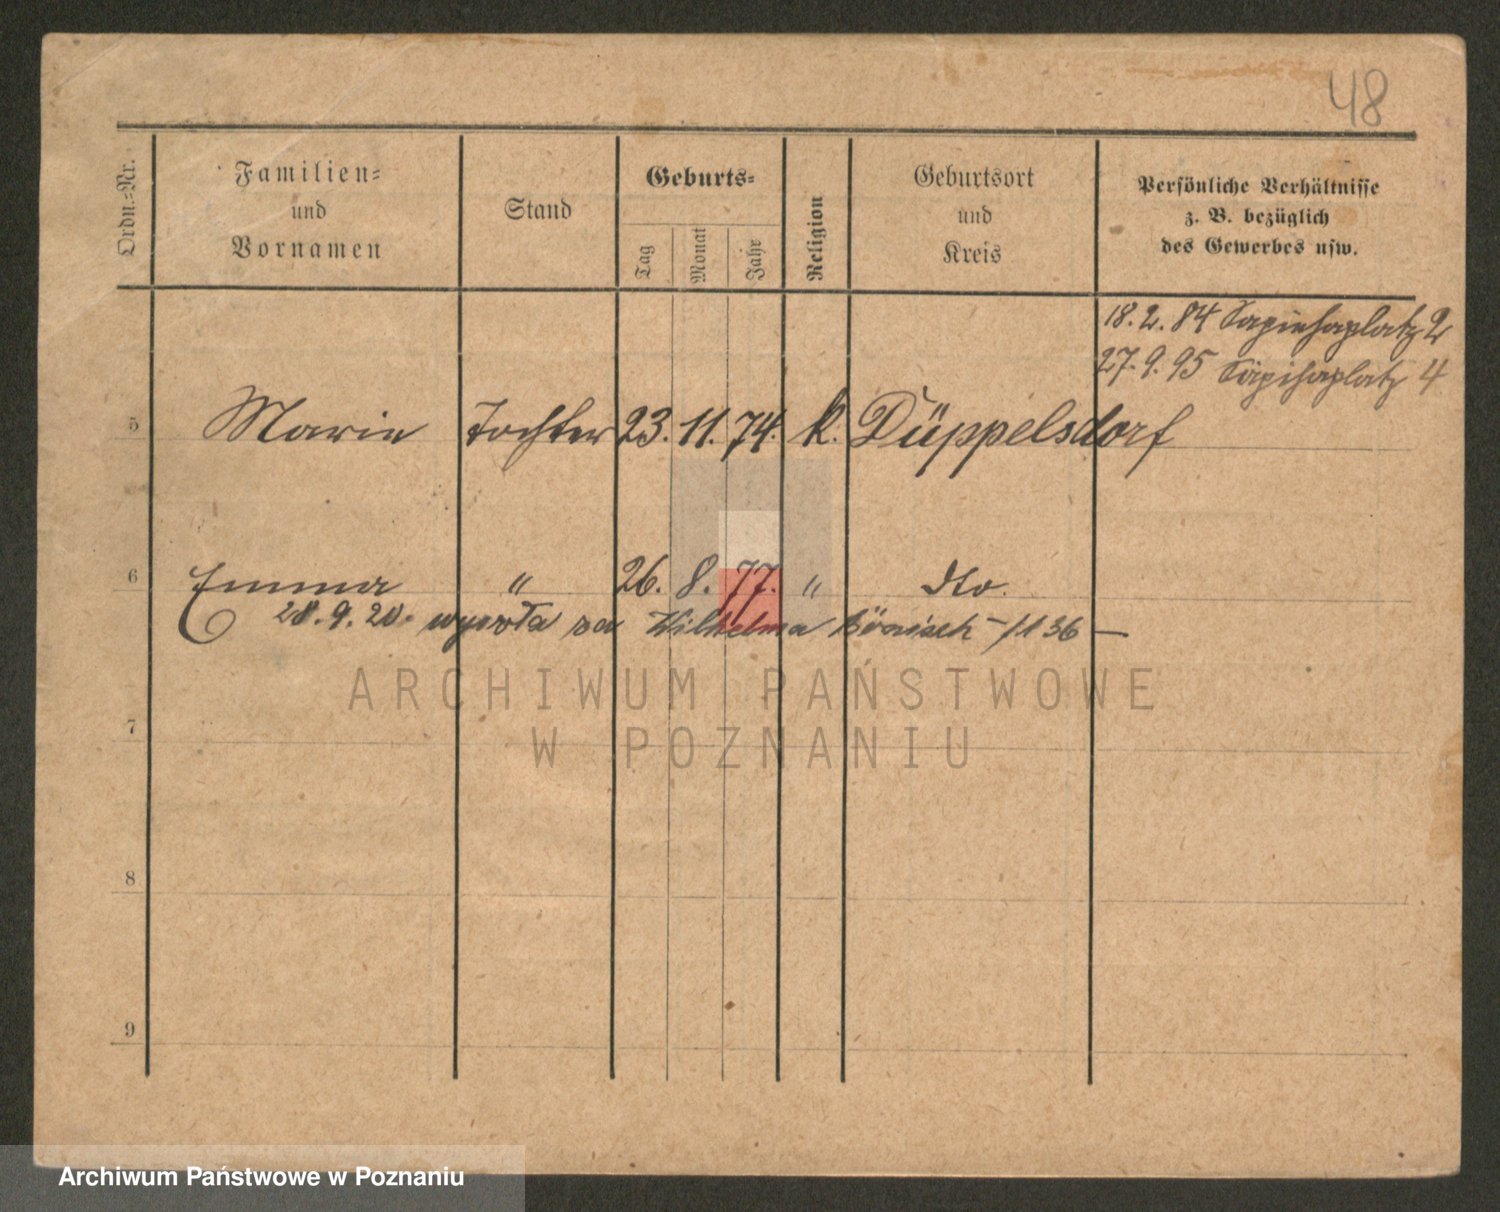 48
Ordn.=Nr.
Familien=
und
Vornamen
Stand
Geburts=
Tag
Monat
Jahr
Religion
Geburtsort
und
Kreis
Persönliche Verhältnisse
z. B. bezüglich
des Gewerbes usw.
18.2.84 Sapiehaplatz 2
27.9.95 Sapihaplatz 4
5 Marie Tochter 23. 11. 74. k. Düppelsdorf
6 Emma " 26. 8. 77. " dto.
28.9.20. wyszła za Wilhelma Bönisch - /1 36 -
ARCHIWUM PAŃSTWOWE
W POZNANIU
7
8
9
Archiwum Państwowe w Poznaniu